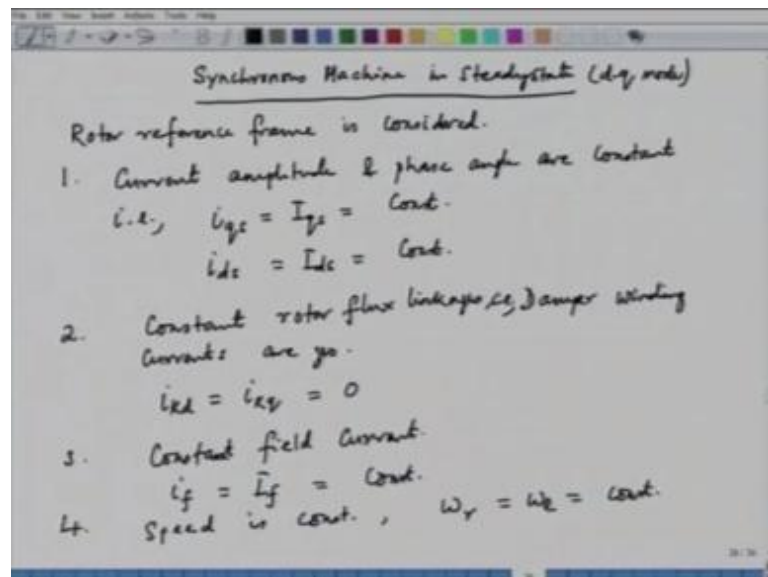 File Edit View Insert Actions Tools Help
Synchronous Machine in Steadystate (dq model)
Rotor reference frame is considered.
1. Current amplitude & phase angle are constant
i.e., iqs = Iqs = Const.
ids = Ids = Const.
2. Constant rotor flux linkages, ie, Damper winding
Currents are
ikd = ikq = 0
3. Constant field Current.
if = If = Const.
4. Speed is const., ωr = ωe = const.